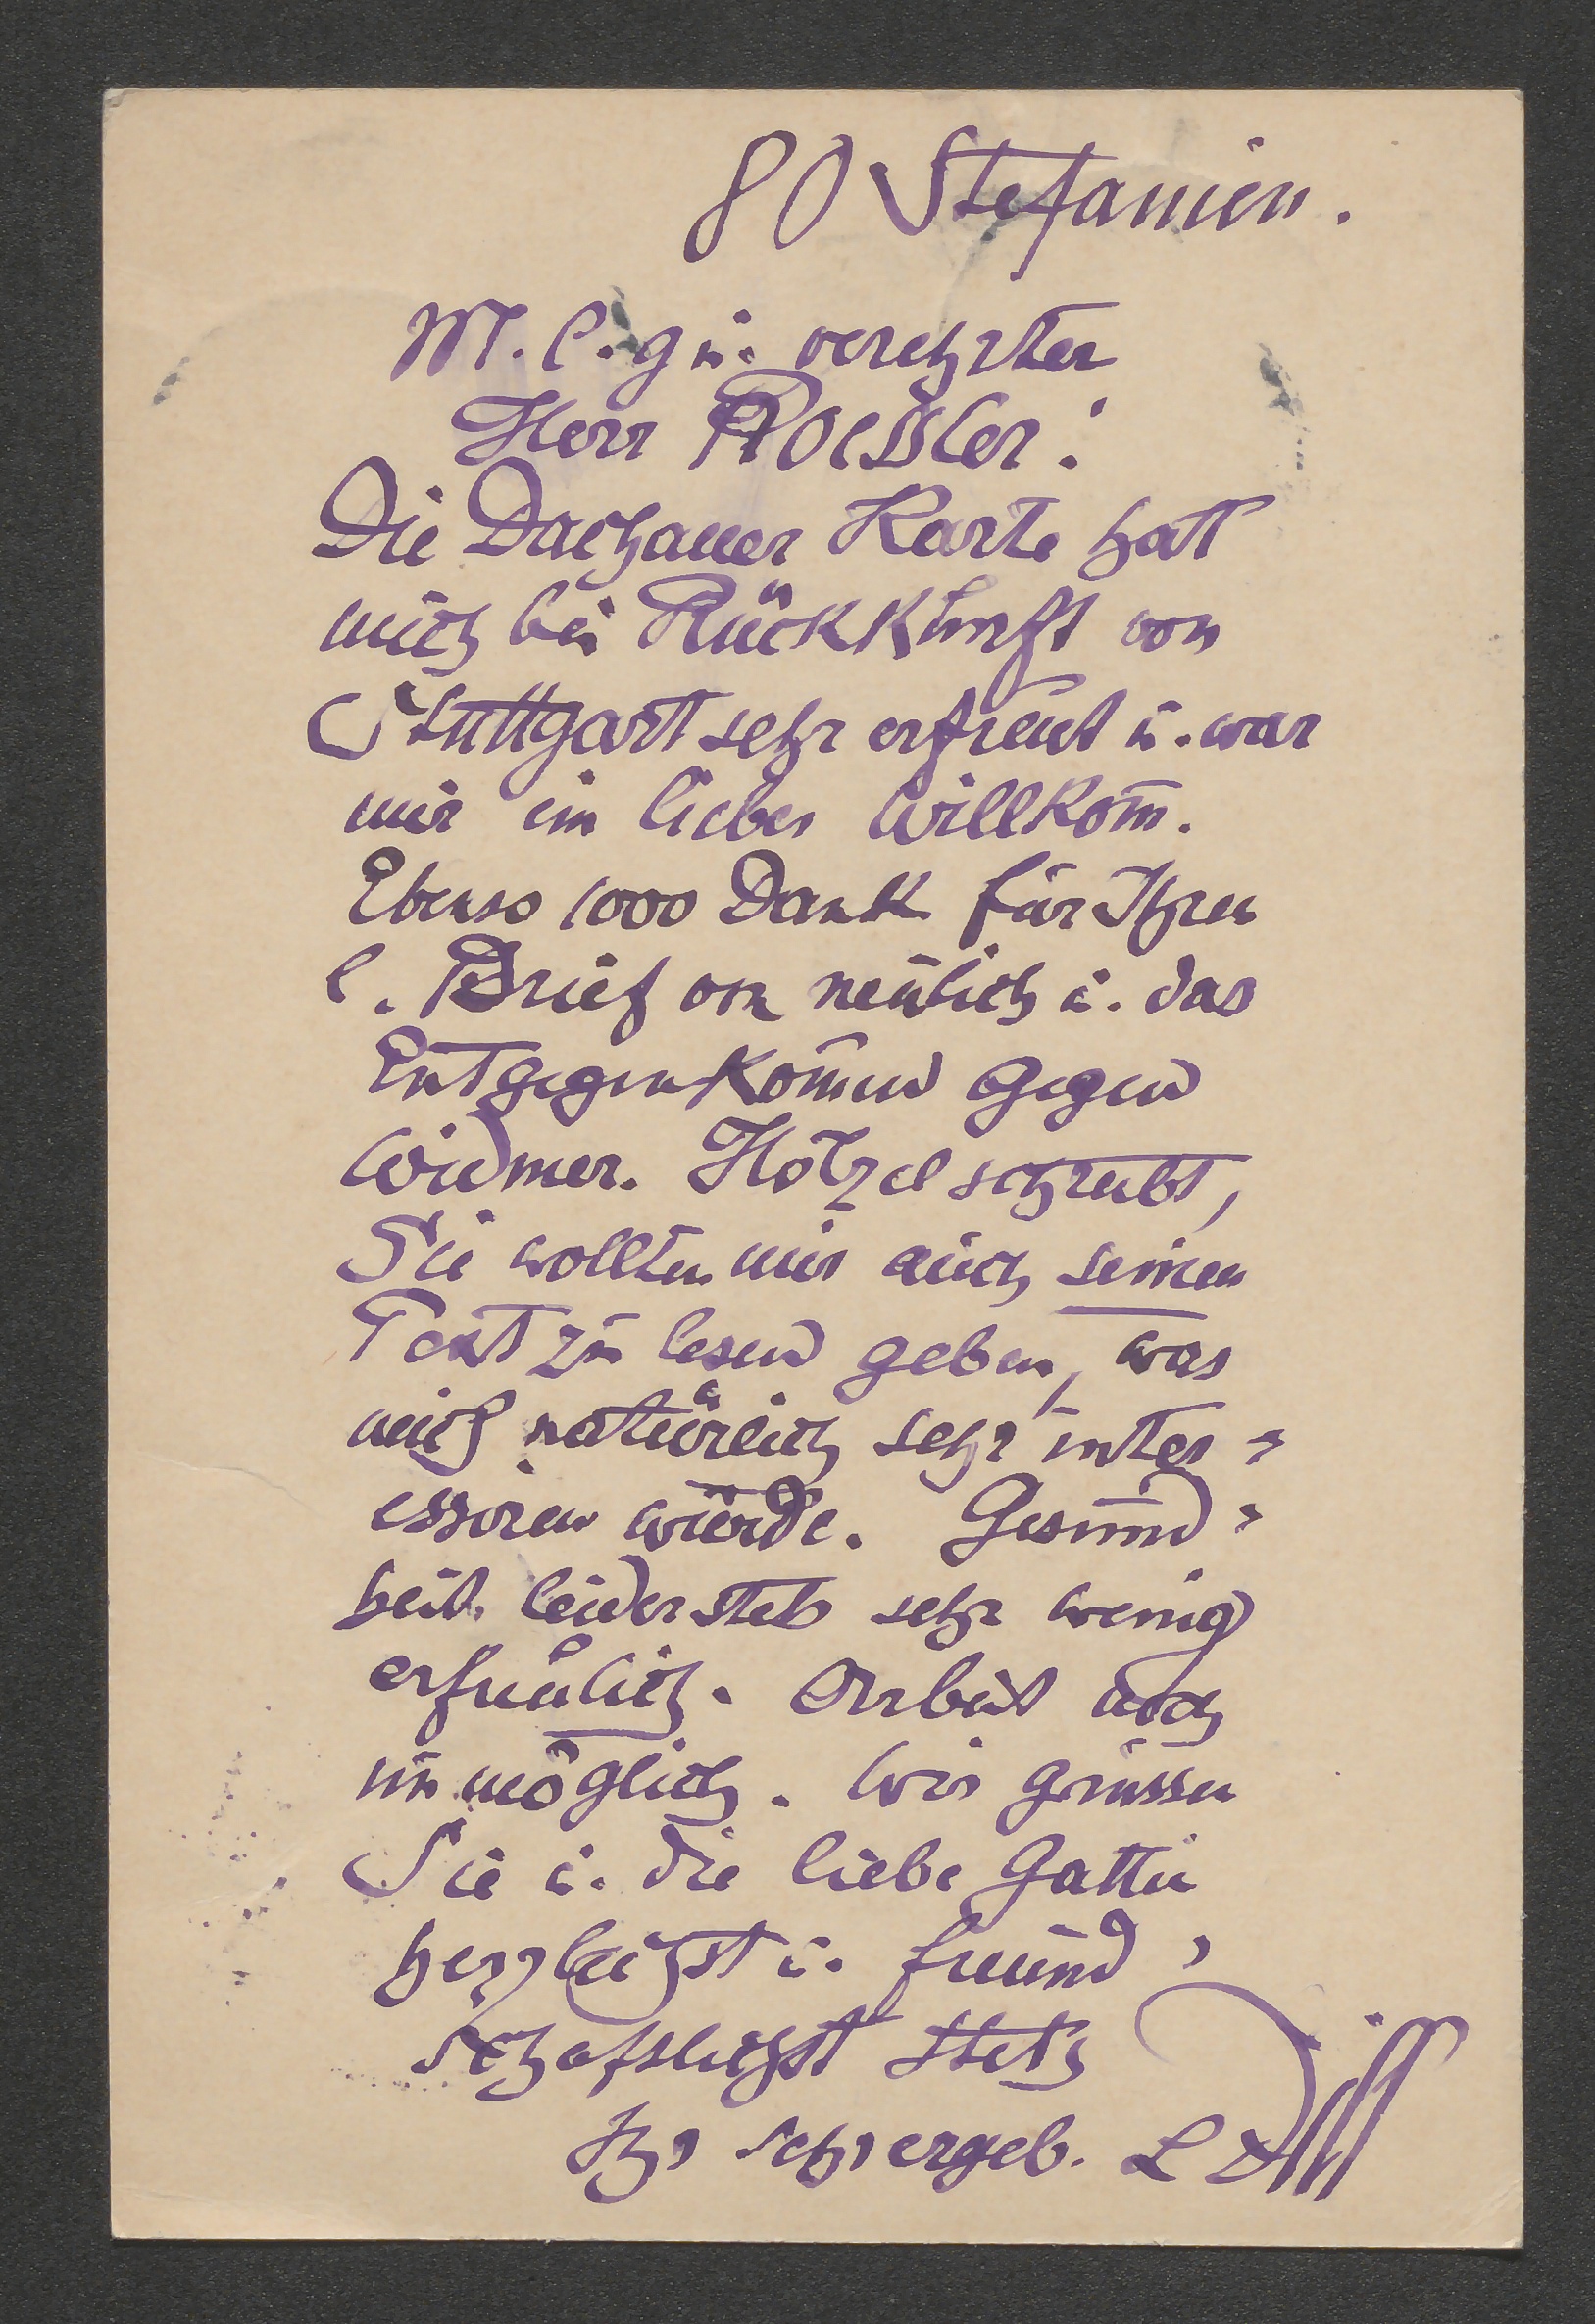 80 Stefanien.
M. l. g u. verehrter
Herr Roessler!
Die Dachauer Karte hat
mich bei Rückkunft von
Stuttgart sehr erfreut u. war
mir ein lieber Willkom̄.
Ebenso 1000 Dank für Ihren
l. Brief von neulich u. das
Entgegenkom̄en gegen
Widmer. Hölzel schreibt,
Sie wollten mir auch seinen
Text zu lesen geben, was
mich natürlich sehr inter=
essiren würde. Gesund=
heit leider stets sehr wenig
erfreulich. Arbeit noch
unmöglich. Wir grüssen
Sie u. die liebe Gattin
herzlichst u. freund=
schaftlichst stets
Ihr sehr ergeb. L Dill